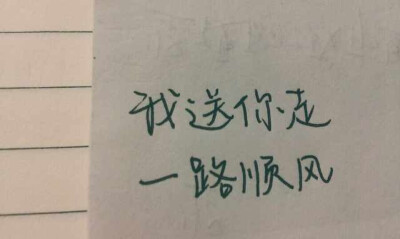 我送你走
一路顺风